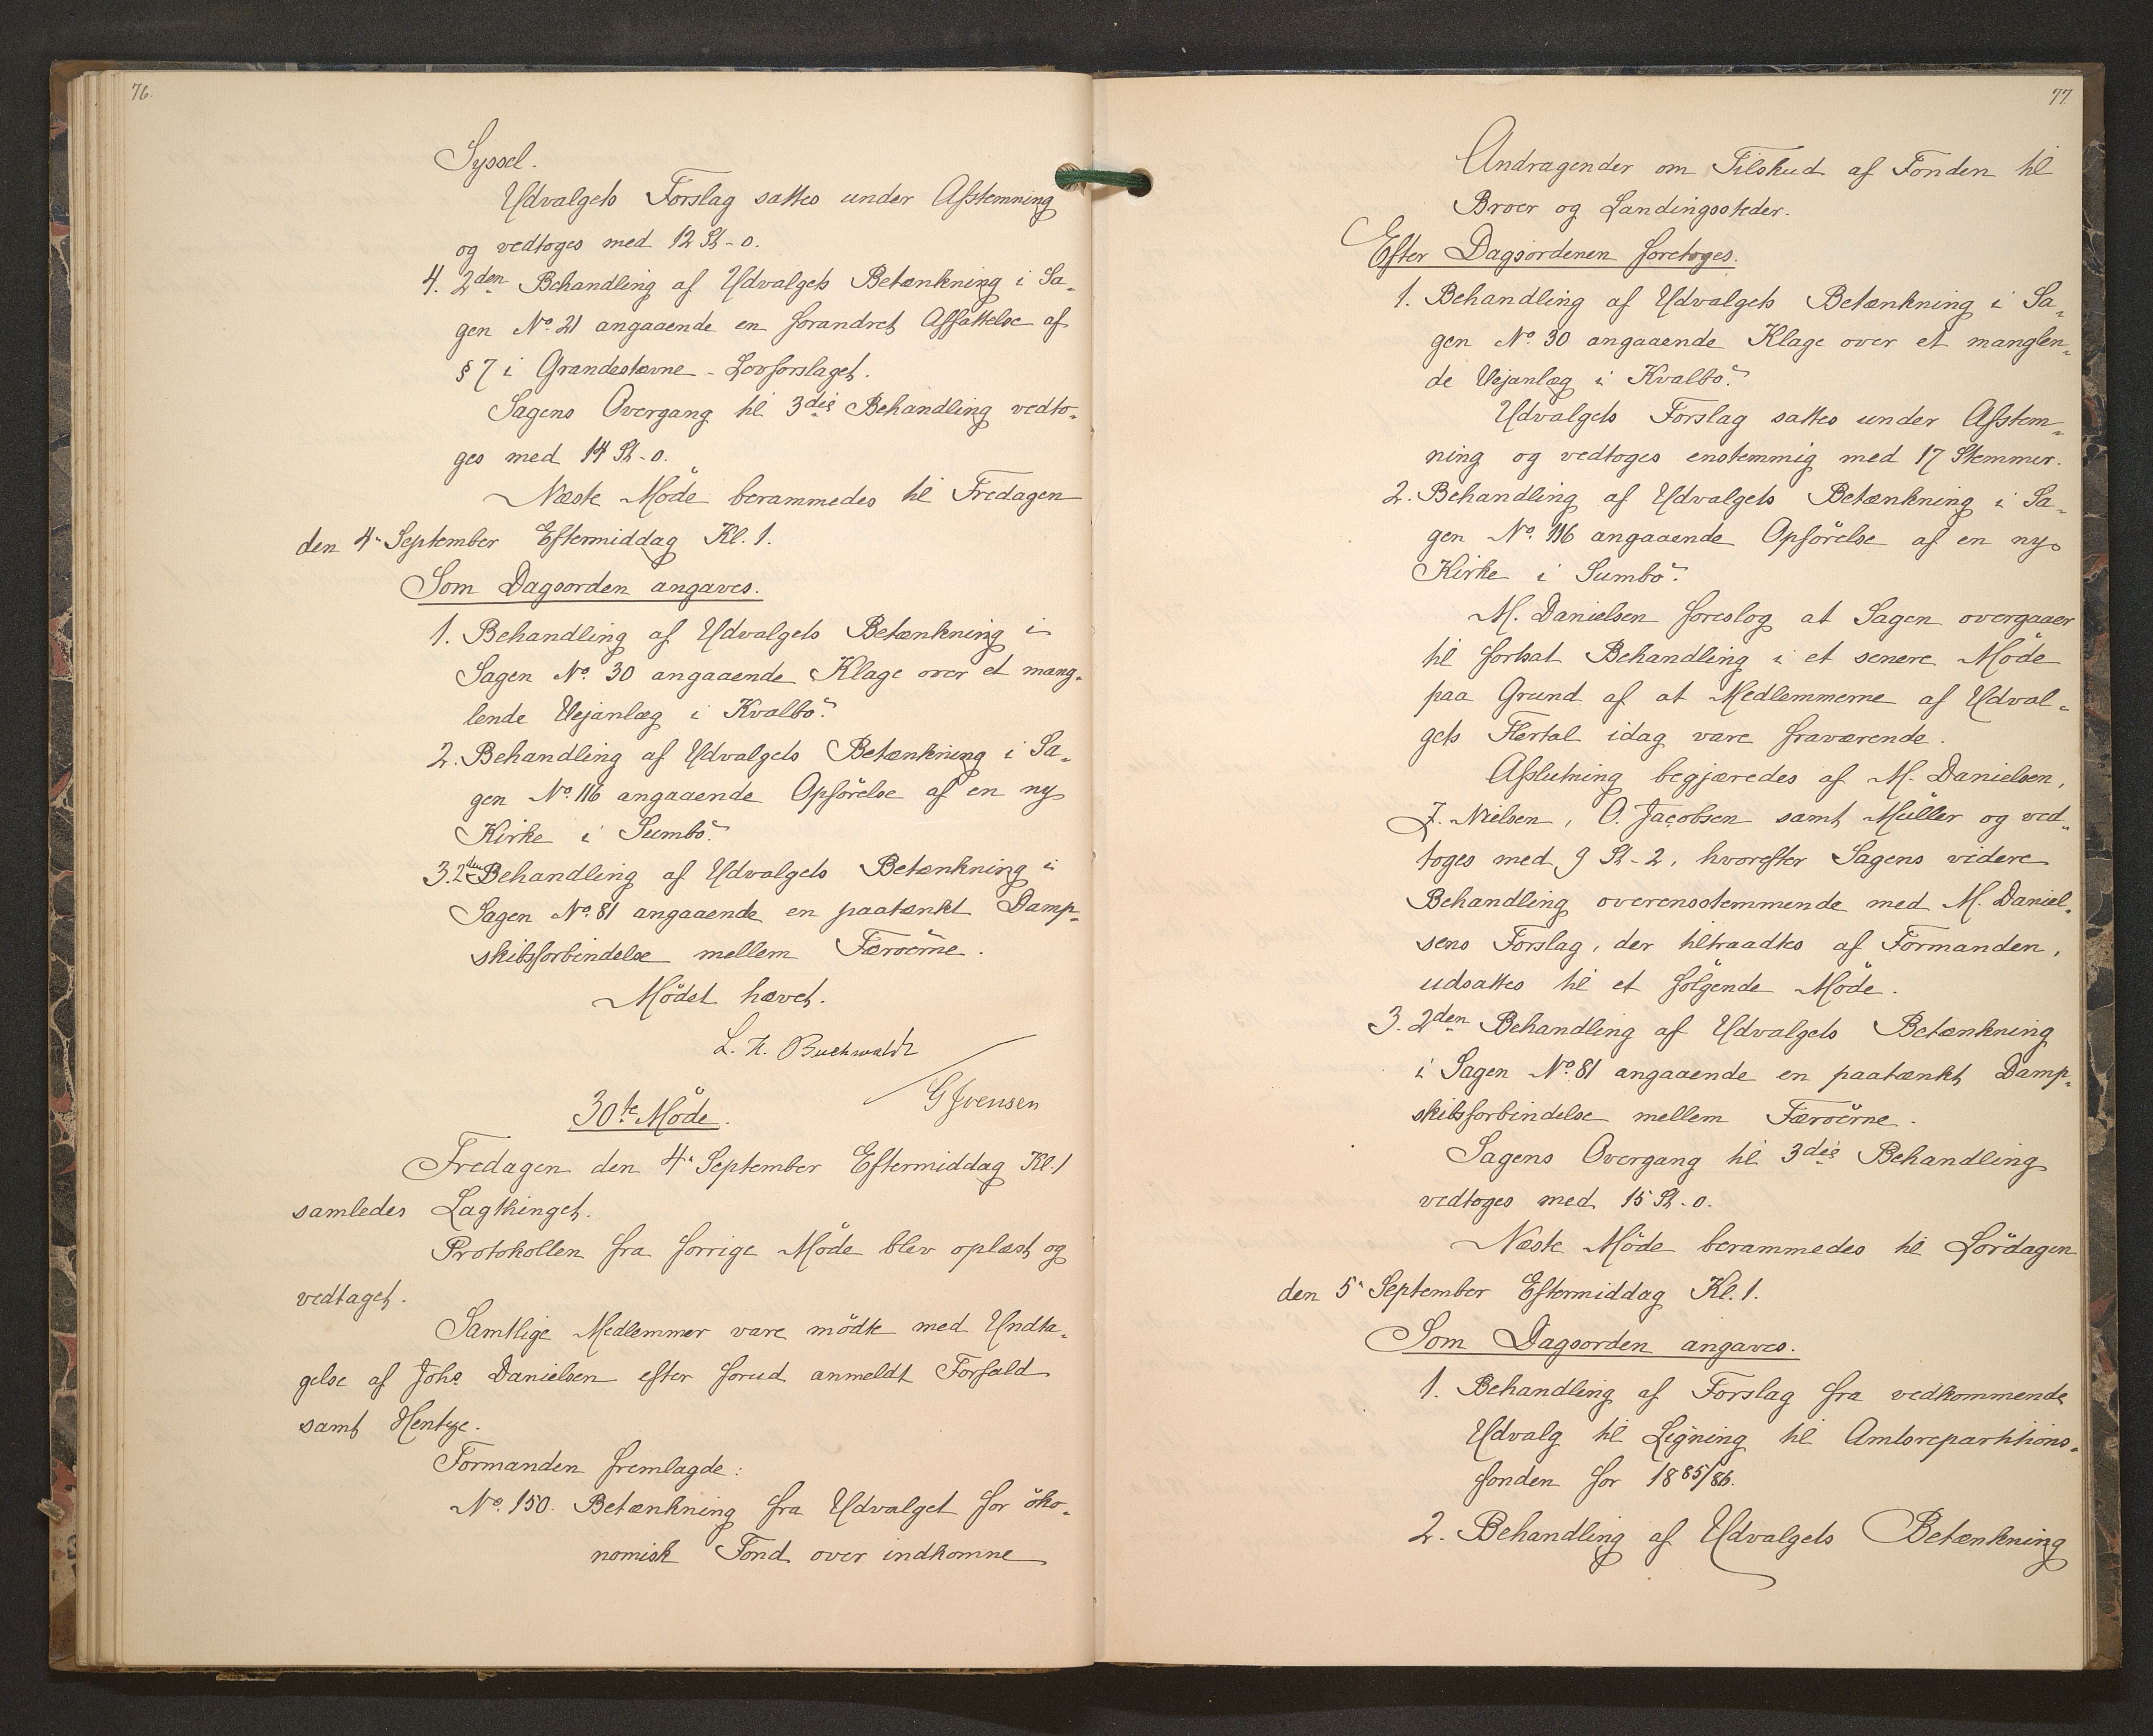 76.
Syssel.
Udvalgets Forslag sattes under Afstemning
og vedtoges med 12 St-0.
4. 2den Behandling af Udvalgets Betænkning i Sa-
gen No. 21 angaaende en forandret Affattelse af
§ 7 i Grandestævne-Lovforslaget.
Sagens Overgang til 3die Behandling vedto-
ges med 14 St-0.
Næste Möde berammedes til Fredagen
den 4. September Eftermiddag Kl. 1.
Som Dagsorden angaves.
1. Behandling af Udvalgets Betænkning i
Sagen No. 30 angaaende Klage over et mang-
lende Vejanlæg i Kvalbö.
2. Behandling af Udvalgets Betænkning i Sa-
gen No. 116 angaaende Opförelse af en ny
Kirke i Sumbö.
3. 2den Behandling af Udvalgets Betænkning i
Sagen No. 81 angaaende en paatænkt Damp-
skibsforbindelse mellem Færöerne.
Mödet hævet.
L. H. Buchwaldt
G Ivensen
30te Möde.
Fredagen den 4. September Eftermiddag Kl. 1
samledes Lagthinget.
Protokollen fra forrige Möde blev oplæst og
vedtaget.
Samtlige Medlemmer vare mödte med Undta-
gelse af Johs Danielsen efter forud anmeldt Forfald
samt Hentze.
Formanden fremlagde:
No. 150. Betænkning fra Udvalget for öko-
nomisk Fond over indkomne
77
Andragender om Tilskud af Fonden til
Broer og Landingssteder.
Efter Dagsordenen foretoges.
1. Behandling af Udvalgets Betænkning i Sa-
gen No. 30 angaaende Klage over et manglen-
de Vejanlæg i Kvalbö.
Udvalgets Forslag sattes under Afstem-
ning og vedtoges enstemmig med 17 Stemmer.
2. Behandling af Udvalgets Betænkning i Sa-
gen No. 116 angaaende Opförelse af en ny
Kirke i Sumbö.
M. Danielsen foreslog at Sagen overgaaer
til fortsat Behandling i et senere Möde
paa Grund af at Medlemmerne af Udval-
gets Flertal idag vare fraværende.
Afslutning begjæredes af M. Danielsen,
J. Nielsen, O. Jacobsen samt Müller og ved-
toges med 9 St-2, hvorefter Sagens videre
Behandling overensstemmende med M. Daniel-
sens Forslag, der tiltraadtes af Formanden,
udsattes til et fölgende Möde.
3. 2den Behandling af Udvalgets Betænkning
i Sagen No. 81 angaaende en paatænkt Damp-
skibsforbindelse mellem Færöerne.
Sagens Overgang til 3die Behandling
vedtoges med 15 St-0.
Næste Möde berammedes til Lördagen
den 5. September Eftermiddag Kl. 1.
Som Dagsorden angaves.
1. Behandling af Forslag fra vedkommende
Udvalg til Ligning til Amtsrepartitions-
fonden for 1885/86.
2. Behandling af Udvalgets Betænkning